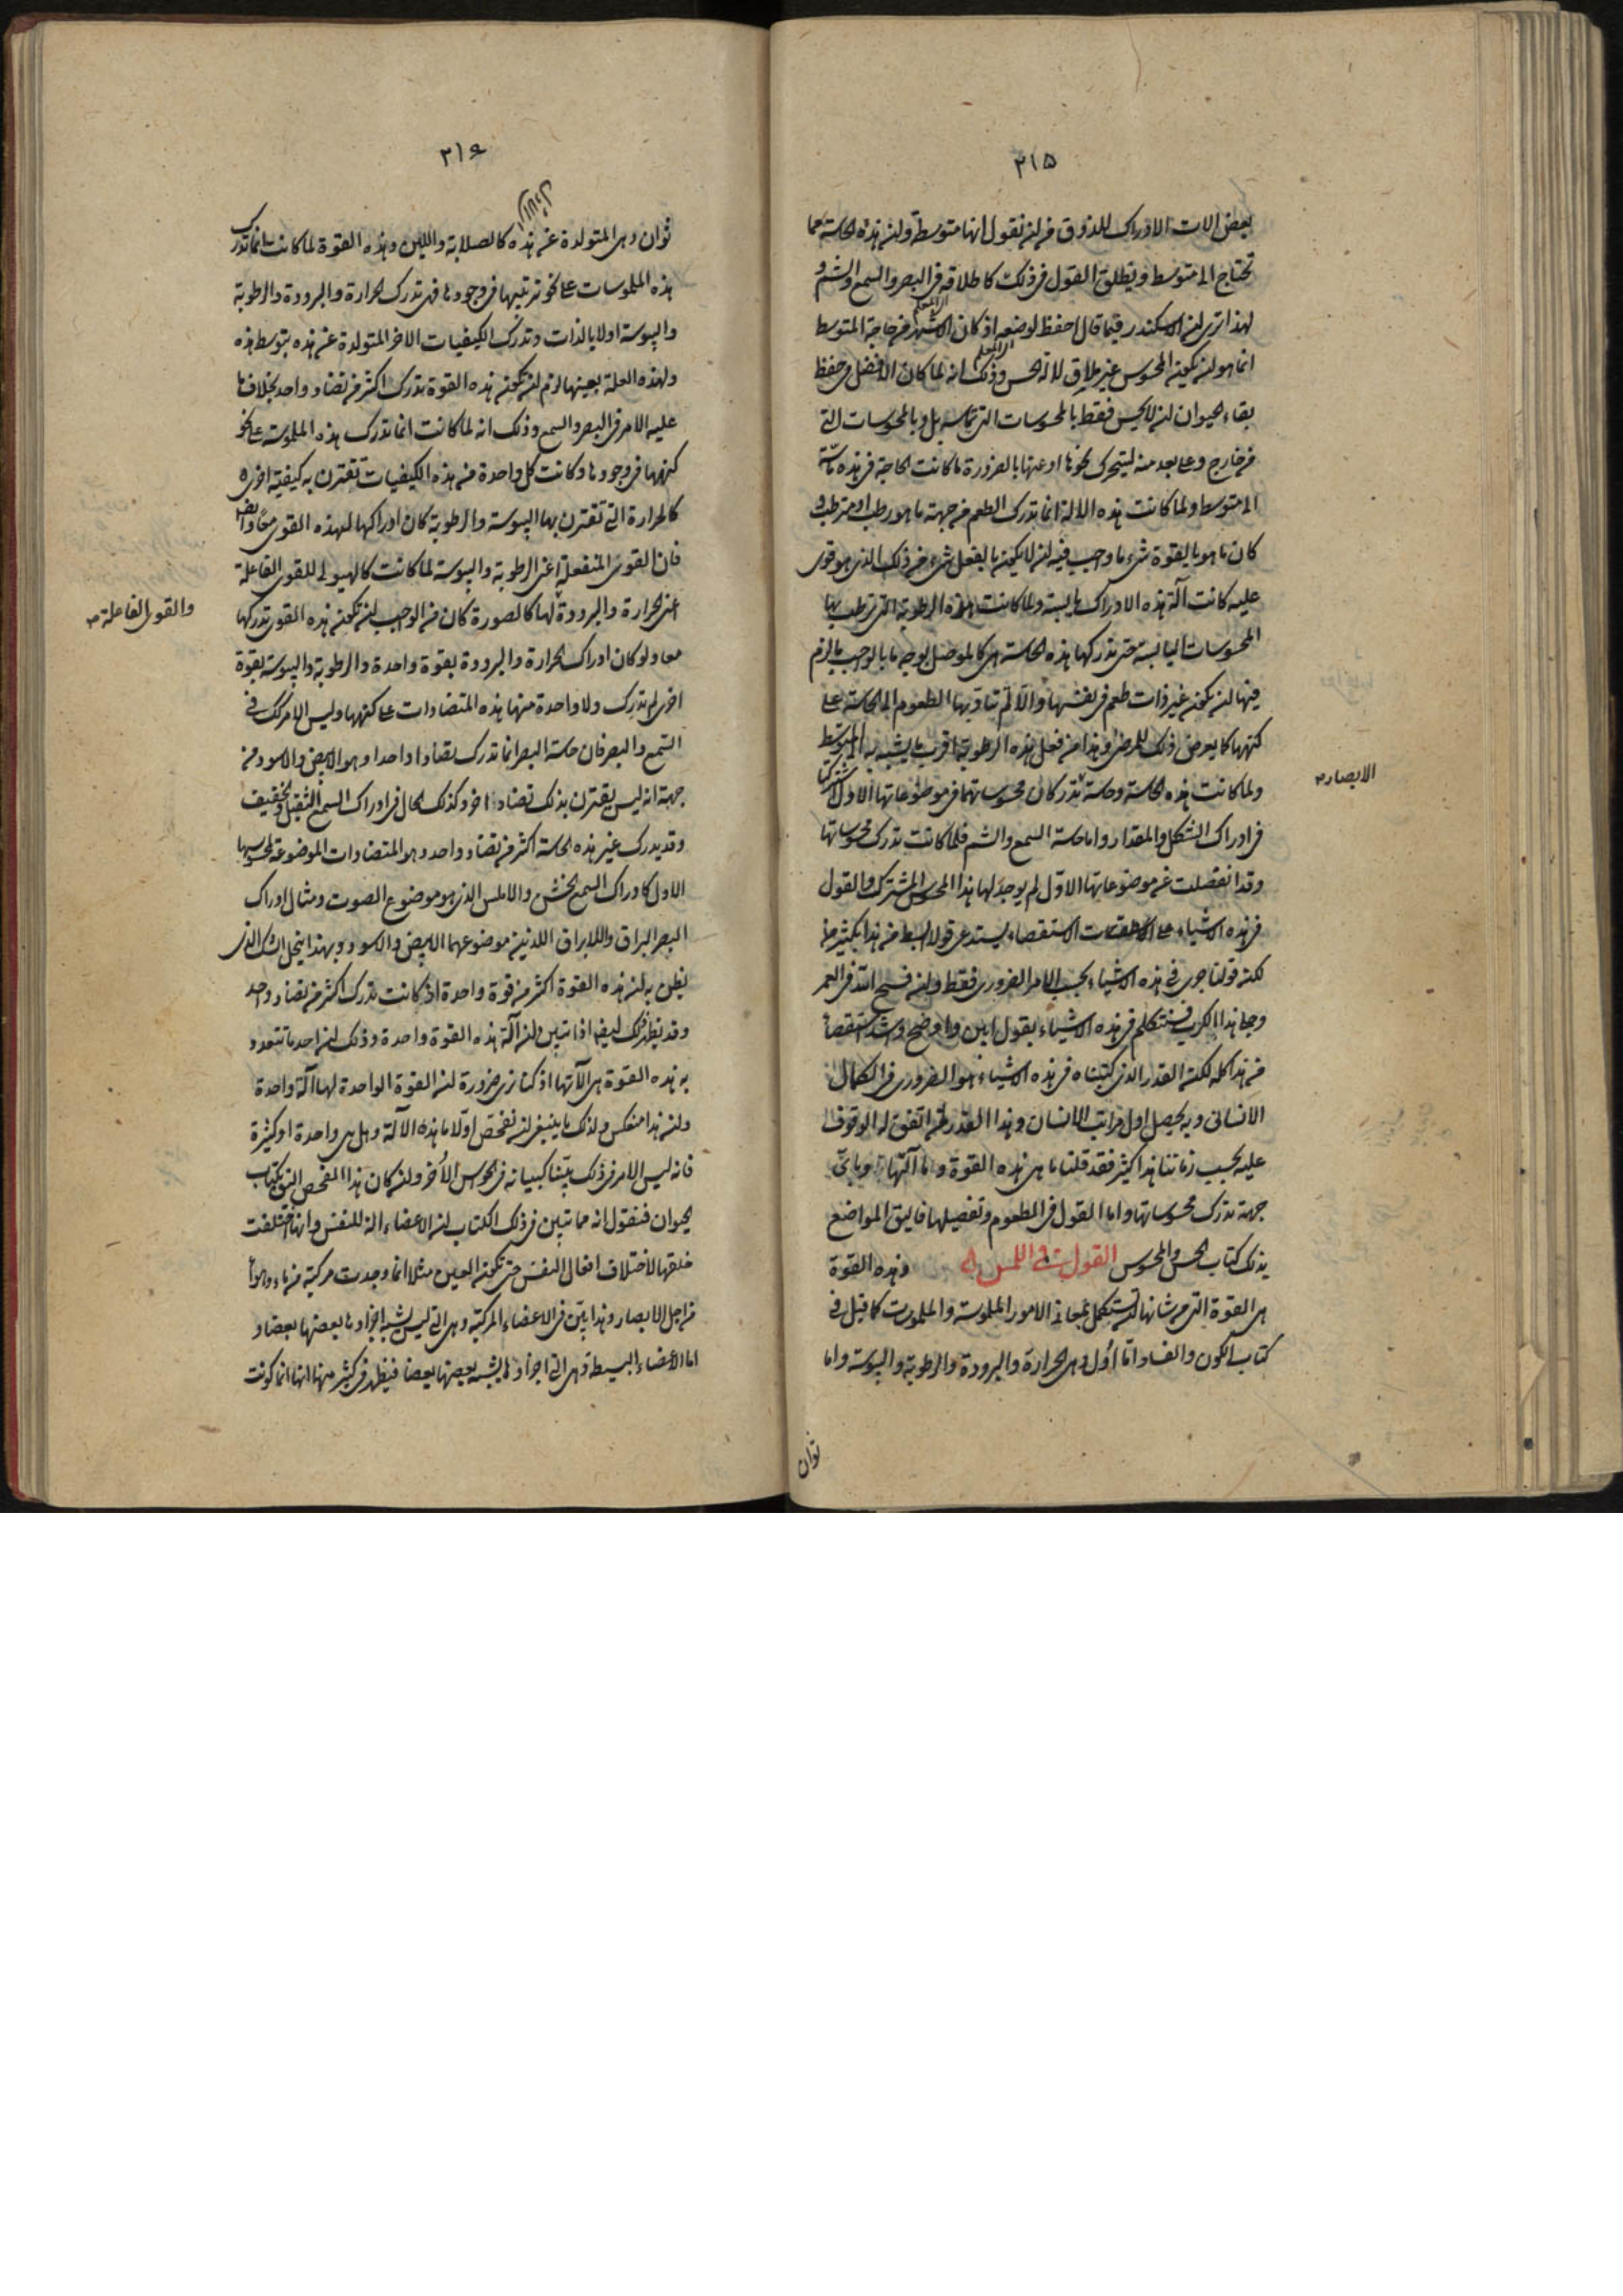 ٢١٥
بعض الات الادراك للذوق من ان نقول انها متوسطة وان هذه الحاسة مما
تحتاج الى متوسط ويطلق القول فى ذلك كاطلاقه فى البصر والسمع والشم و
لهذا ترى ان الاسكندر فيما قال احفظ لوضعه اذ كان الاشهر من حاجة المتوسط
انما هو ان يكون المحسوس غير ملاق لالة الحس وذلك انه لما كان الافضل فى حفظ
بقاء الحيوان ان لا يحس فقط بالمحسوسات التى تماسه بل وبالمحسوسات التى
من خارج وعلى بعد منه ليتحرك نحوها او عنها بالضرورة ما كانت الحاجة فى هذه ماسة
الى متوسط ولما كانت هذه الالة انما تدرك الطعم من جهة ما هو رطب او مترطب و
كان ما هو بالقوة شىء ما وجب فيه ان لا يكون بالفعل شىء من ذلك الذى هو قوى
عليه كانت آلة هذه الادراك يابسة ولما كانت هذه الرطوبة التى ترطب بها
المحسوسات اليابسة حتى تدركها هذه الحاسة هى كالموصل بوجه ما بالواجب ما لزم
فيها ان تكون غير ذات طعم فى نفسها والا لم تتادى بها الطعوم الى الحاسة على
كنهها كما يعرض ذلك للمرضى وهذا من فعل هذه الرطوبة اقرب ما يشبه به المتوسط
ولما كانت هذه الحاسة وحاسة تدرك ان محسوساتهما فى موضوعاتها الاول اشتركتا
الابصار صح
فى ادراك الشكل والمقدار واما حاسة السمع والشم فلما كانت تدرك محسوساتها
وقد انفصلت عن موضوعاتها الاول لم يوجد لها هذا المحسوس المشترك والقول
فى هذه الاشياء على الاستقصاء يستدعى قولا ابسط من هذا بكثير
لكن قولنا جرى فى هذه الاشياء بحسب الامر الضرورى فقط وان فسح الله فى العمر
وجلى هذا الكرب فسنتكلم فى هذه الاشياء بقول ابين واوضح واشد استقصاء
من هذا كله لكن القدر الذى كتبناه فى هذه الاشياء هو الضرورى فى الكمال
الانسانى وبه يحصل اول مراتب الانسان وهذا القدر لمن اتفق له الوقوف
عليه بحسب زماننا هذا كثير فقد قلنا ما هى هذه القوة وما آلتها وباى
جهة تدرك محسوساتها واما القول فى الطعوم وتفصيلها فاليق المواضع
بذلك كتاب الحس والمحسوس القول فى اللمس وهذه القوة
هى القوة التى من شانها ان تستكمل بمعانى الامور الملموسة والملموسات كما قيل فى
كتاب الكون والفساد اما اُول وهى الحرارة والبرودة والرطوبة واليبوسة واما
ثوان
٢١٦
ثوان وهى المتولدة عن هذه كالصلابة واللين وهذه القوة لما كانت انما تدرك
هذه الملموسات على نحو ترتيبها فى وجودها فهى تدرك الحرارة والبرودة والرطوبة
واليبوسة اولا بالذات وتدرك الكيفيات الاخر المتولدة عن هذه بتوسط هذه
ولهذه العلة بعينها لزم ان تكون هذه القوة تدرك اكثر من تضاد واحد بخلاف ما
عليه الامر فى البصر والسمع وذلك انه لما كانت انما تدرك هذه الملموسة على نحو
كنهها فى وجودها وكانت كل واحدة من هذه الكيفيات تقترن به كيفية اخرى
كالحرارة التى تقترن بها اليبوسة والرطوبة كان ادراكها لهذه القوى معًا وايضا
فان القوى المنفعلة اعنى الرطوبة واليبوسة لما كانت كالهيولى للقوى الفاعلة
اعنى الحرارة والبرودة لها كالصورة كان من الواجب ان تكون هذه القوى تدركها
والقوى الفاعلة صح
معا ولو كان ادراك الحرارة والبرودة بقوة واحدة والرطوبة واليبوسة بقوة
اخرى لم تدرك ولا واحدة منها هذه المتضادات على كنهها وليس الامر كك فى
السمع والبصر فان حاسة البصر انما تدرك تضادا واحدا وهو الابيض والاسود من
جهة انه ليس يقترن بذلك تضاد اخر وكذلك الحال فى ادراك السمع الثقيل والخفيف
وقد يدرك غير هذه الحاسة اكثر من تضاد واحد وهو المتضادات الموضوعة لمحسوسها
الاول كادراك السمع الخشن والاملس الذى هو موضوع الصوت ومثال ادراك
البصر البراق واللابراق اللذين موضوعهما الابيض والاسود وبهذا ينحل الشك الذى
يظن به ان هذه القوة اكثر من قوة واحدة اذ كانت تدرك اكثر من تضاد واحد
وقد يظهر ذلك ايضا اذا تبين ان آلة هذه القوة واحدة وذلك ان احد ما تتعدد
به هذه القوة هى الآتها اذ كنا نرى ضرورة ان القوة الواحدة لها آلة واحدة
وان هذا منعكس ولذلك ما ينبغى ان نفحص اولا ما هذه الآلة وهل هى واحدة او كثيرة
فانه ليس الامر فى ذلك بيّنا كبيانه فى الحواس الاُخر وان كان هذا الفحص اليق بكتاب
الحيوان فنقول انه مما تبين فى ذلك الكتاب ان الاعضاء الة للنفس وانها اختلفت
خلقها لاختلاف افعال النفس حتى تكون العين مثلا انما وجدت مركبة من ماء وهواء
من اجل الابصار وهذا بيّن فى الاعضاء المركبة وهى التى ليس يشبه اجزاءها بعضها بعضا و
اما الاعضاء البسيطة وهى التى اجزاءها يشبه بعضها بعضا فيظهر فى كثير منها انها انما كونت